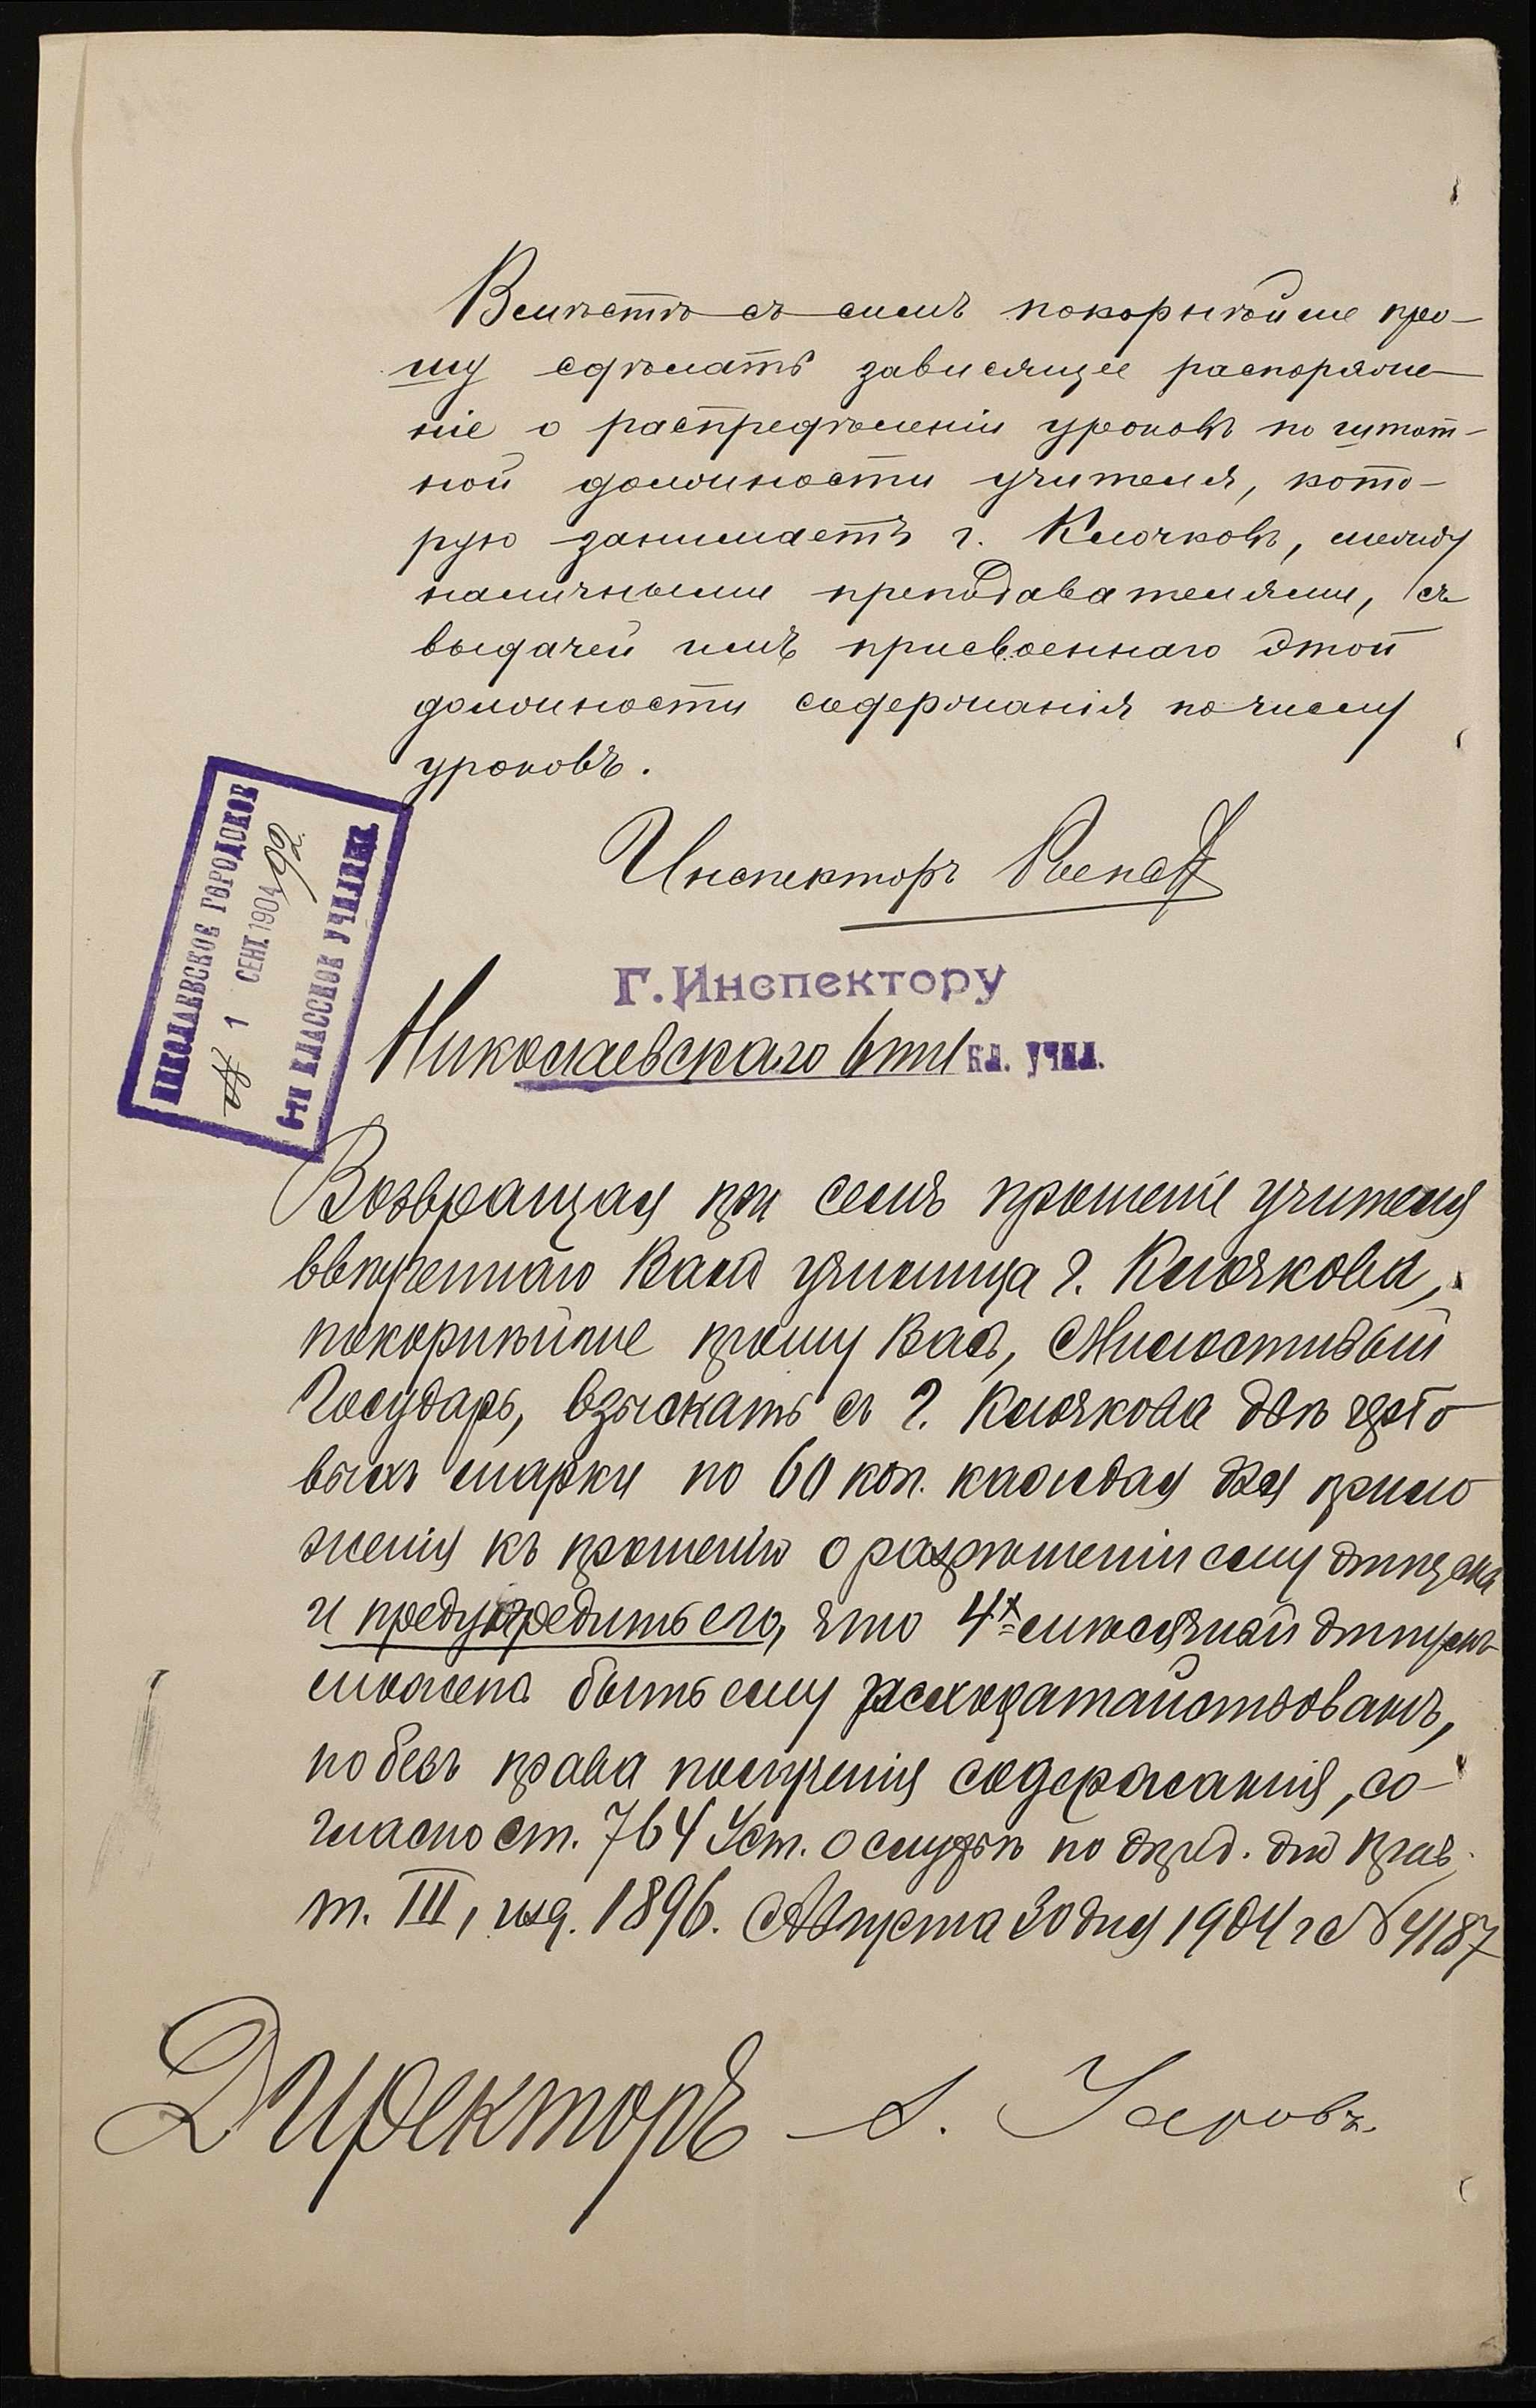 Вмѣстѣ съ симъ покорнѣйше про-
шу сдѣлать зависящее распоряже-
ніе о распредѣленіи уроковъ по штат-
ной должности учителя, кото-
рую занимаетъ г. Клочковъ, между
наличными преподавателями, съ
выдачей имъ присвоеннаго этой
должности содержанія по числу
уроковъ.
Инспекторъ
НИКОЛАЕВСКОЕ ГОРОДСКОЕ
№ 1 СЕНТ. 1904 92.
6-ТИ КЛАССНОЕ УЧИЛИЩЕ.
Г. Инспектору
Николаевскаго 6ти КЛ. УЧИЛ.
Возвращая при семъ прошеніе учителя
ввѣреннаго Вамъ училища г. Клочкова,
покорнѣйше прошу Васъ, Милостивый
Государь, взыскать съ г. Клочкова двѣ герб о
выхъ марки по 60 коп. каждая для прило
женія къ прошенію о разрѣшеніи ему отпуска
и предупредить его, что 4х мѣсячный отпускъ
можетъ быть ему исходатайствованъ,
но безъ права полученія содержанія, со-
гласно ст. 764 Уст. о службѣ по опред. отъ Прав.
т. III, изд. 1896. Августа 30 дня 1904 г № 4187
Директоръ А.